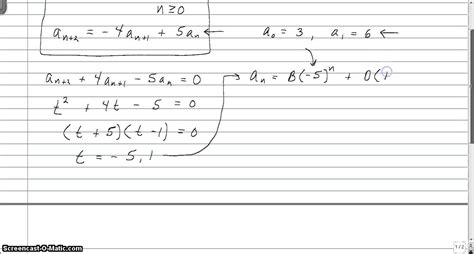 n ≥ 0
a_{n+2} = -4a_{n+1} + 5a_n ←
a_0 = 3 , a_1 = 6 ←
a_{n+2} + 4a_{n+1} - 5a_n = 0
t^2 + 4t - 5 = 0
(t + 5)(t - 1) = 0
t = -5, 1
→ a_n = B(-5)^n + D(1
Screencast-O-Matic.com
1/2